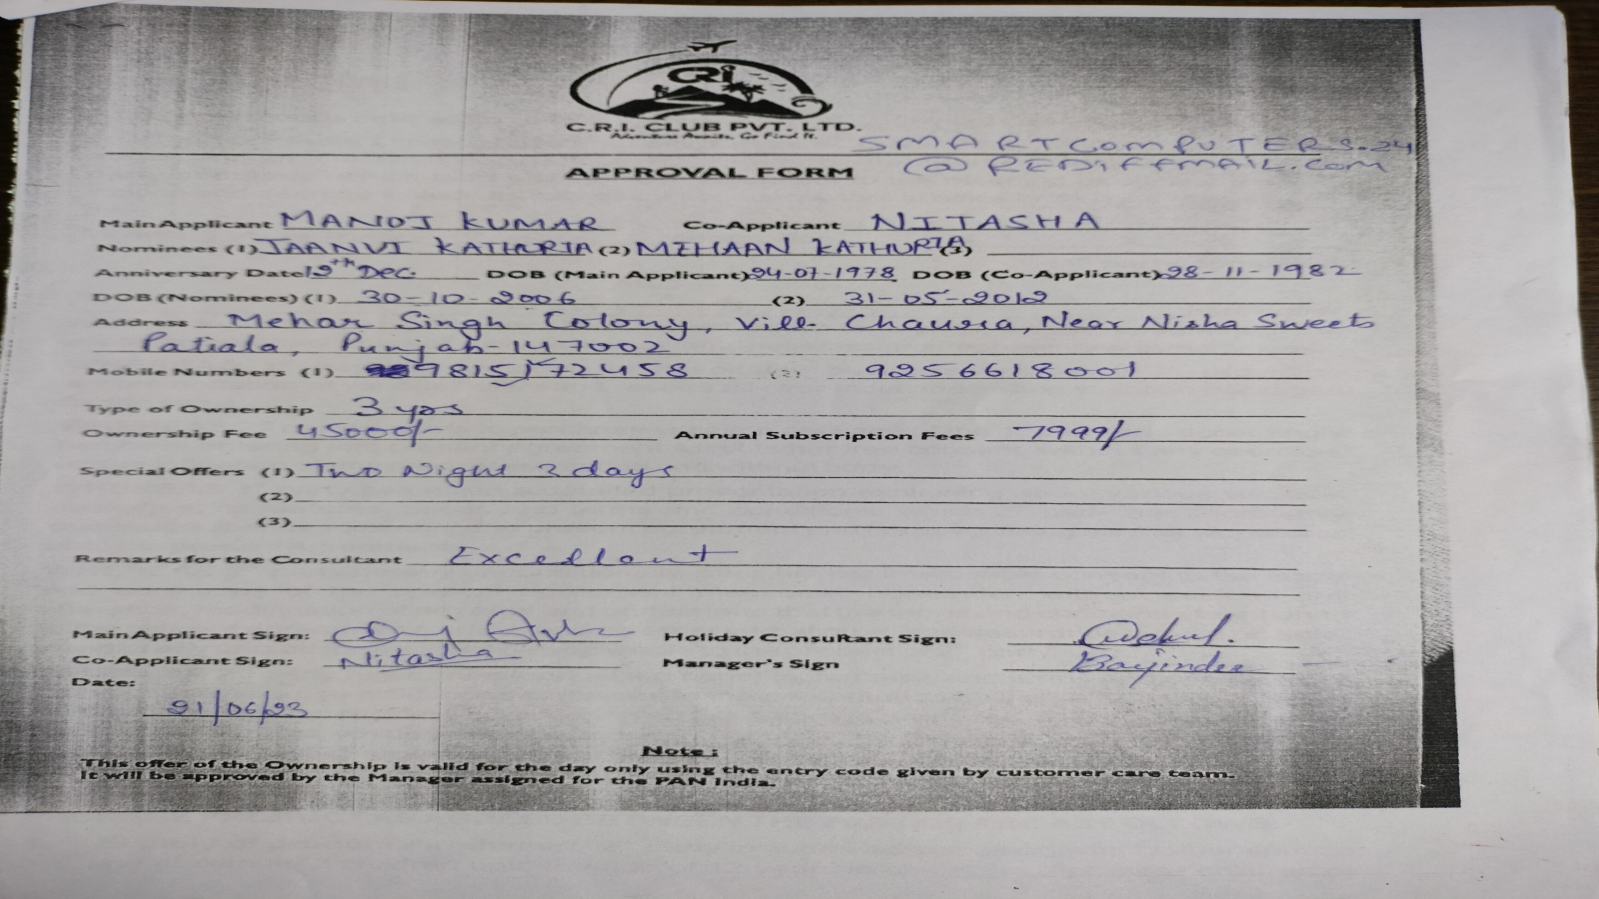 CRi
C.R.I. CLUB PVT. LTD.
Adventure Awaits, Go Find It.
SMARTCOMPUTERS.24
@REDIFFMAIL.COM
APPROVAL FORM
Main Applicant MANOJ KUMAR Co-Applicant NITASHA
Nominees (1) JAANVI KATHURIA (2) MEHAAN KATHURIA (3)
Anniversary Date 12th Dec. DOB (Main Applicant) 24-07-1978 DOB (Co-Applicant) 28-11-1982
DOB (Nominees) (1) 30-10-2006 (2) 31-05-2012
Address Mehar Singh Colony, Vill- Chaura, Near Nisha Sweets
Patiala, Punjab-147002
Mobile Numbers (1) 9815172458 (2) 9256618001
Type of Ownership 3 yrs
Ownership Fee 45000/- Annual Subscription Fees 7999/-
Special Offers (1) Two Night 3 days
(2)
(3)
Remarks for the Consultant Excellent
Main Applicant Sign: Holiday Consultant Sign:
Co-Applicant Sign: Nitasha Manager's Sign
Date:
21/06/23
Note :
This offer of the Ownership is valid for the day only using the entry code given by customer care team.
It will be approved by the Manager assigned for the PAN India.